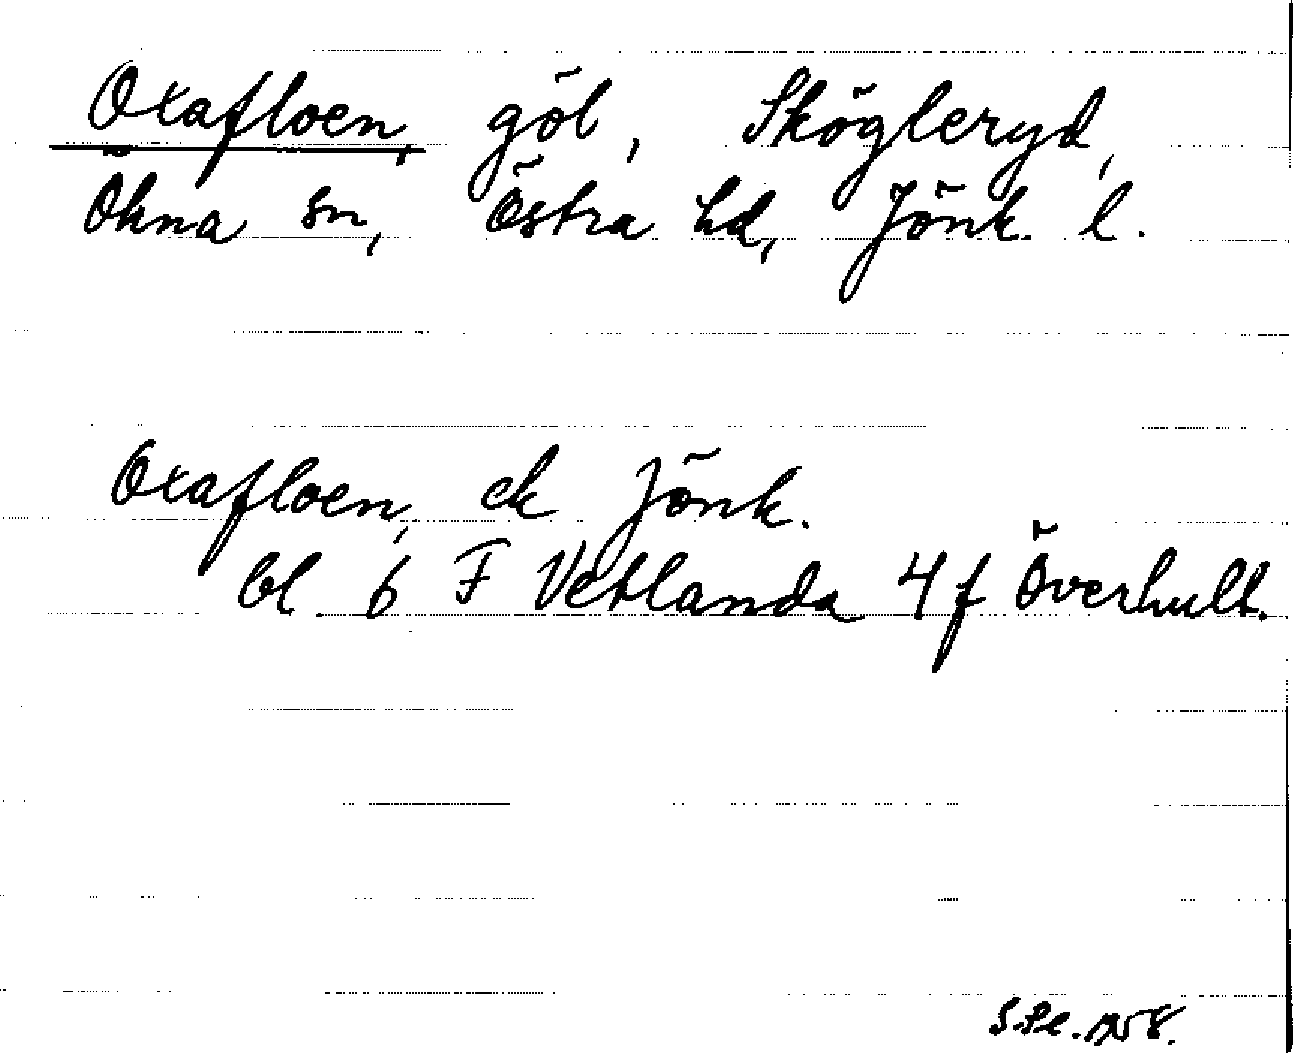 Oxafloen, göl, Skögleryd,
Ökna sn, Östra hd, Jönk. l.
Oxafloen, ek Jönk.
bl 6 F Vetlanda 4 f Överhult.
1958.